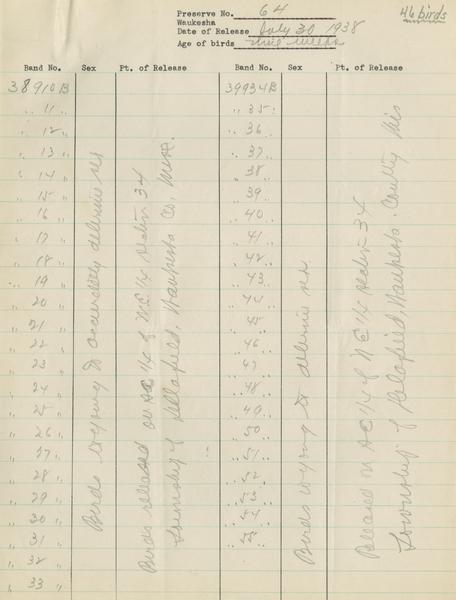 Preserve No. 64
46 birds
Waukesha
Date of Release July 30 1938
Age of birds nine weeks
Band No. Sex Pt. of Release Band No. Sex Pt. of Release
38910B 39934B
" 11 " " 35 "
" 12 " " 36
" 13 " " 37
" 14 " " 38
" 15 " " 39
" 16 " " 40
" 17 " " 41
" 18 " " 42
" 19 " " 43
" 20 " " 44
" 21 " " 45
" 22 " " 46
" 23 " " 47
" 24 " " 48
" 25 " " 49
" 26 " " 50
" 27 " " 51
" 28 " " 52
" 29 " " 53
" 30 " " 54
" 31 " " 55
" 32 "
" 33 "
Birds to young to accurately determine sex
Birds released on SE 1/4 of N.E. 1/4 Section 34
Township of Delafield, Waukesha Co, Wisc.
Birds to young to determine sex.
Released on SE 1/4 of N E 1/4 Section 34
Township of Delafield, Waukesha County Wis